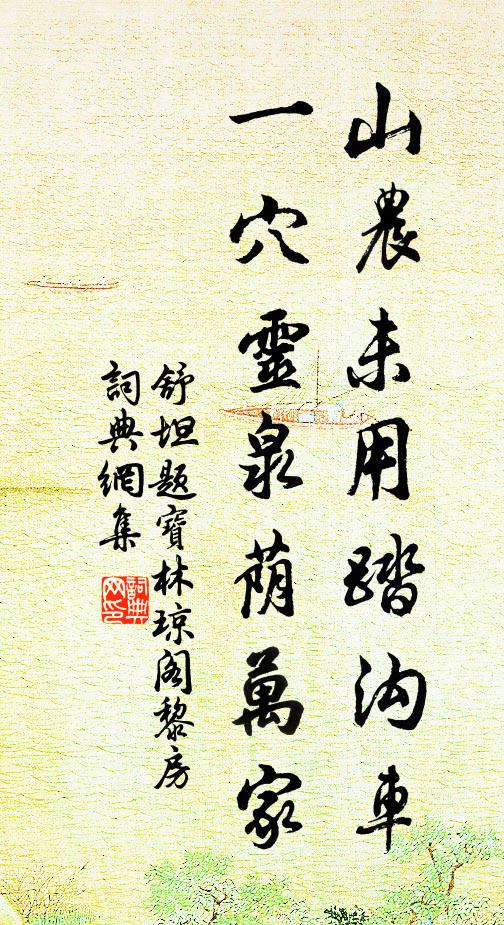 山農未用踏沟車
一穴靈泉蔭萬家
舒坦题寶林琼阁黎房
詞典網集
詞典網印